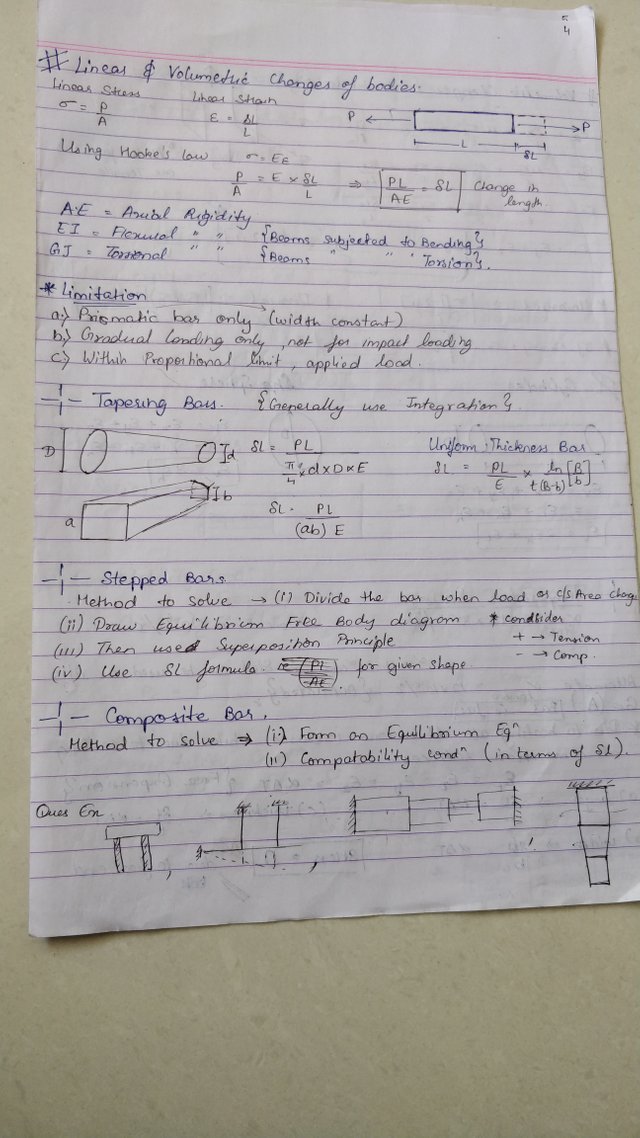 5
4
# Linear & Volumetric Changes of bodies.
Linear Stress Linear Strain
σ = P/A ε = δL/L P P
L δL
Using Hooke's law σ = Eε
P/A = E × δL/L ⇒ PL/AE = δL Change in length.
A·E = Axial Rigidity
EI = Flexural " " {Beams subjected to Bending}
GJ = Torsional " " {Beams " " " Torsion}.
* Limitation
a) Prismatic bar only (width constant)
b) Gradual Loading only, not for impact loading
c) Within Proportional limit, applied load.
Tapering Bars. {Generally use Integration}.
D d δL = PL / (π/4 × d × D × E) Uniform Thickness Bar
δL = PL/E × ln[B/b] / t(B-b)
a b δL = PL / (ab) E
Stepped Bars
Method to solve → (i) Divide the bar when load or c/s Area change
(ii) Draw Equilibrium Free Body diagram * condsider
(iii) Then used Superposition Principle. + → Tension
(iv) Use δL formula (PL/AE) for given shape - → Comp.
Composite Bar.
Method to solve ⇒ (i) Form an Equilibrium Eqⁿ
(ii) Compatability condⁿ (in terms of δL).
Ques Ex